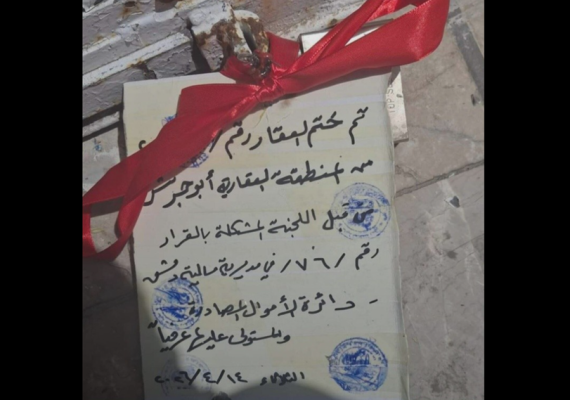 تم ختم العقار رقم /
من المنطقة العقارية أبو جرش
من قبل اللجنة المشكلة بالقرار
رقم /٧٦/ في مديرية مالية دمشق
- دائرة الأموال المصادرة
والمستولى عليها عرفياً
الثلاثاء ٢٠٢٦/٤/١٤